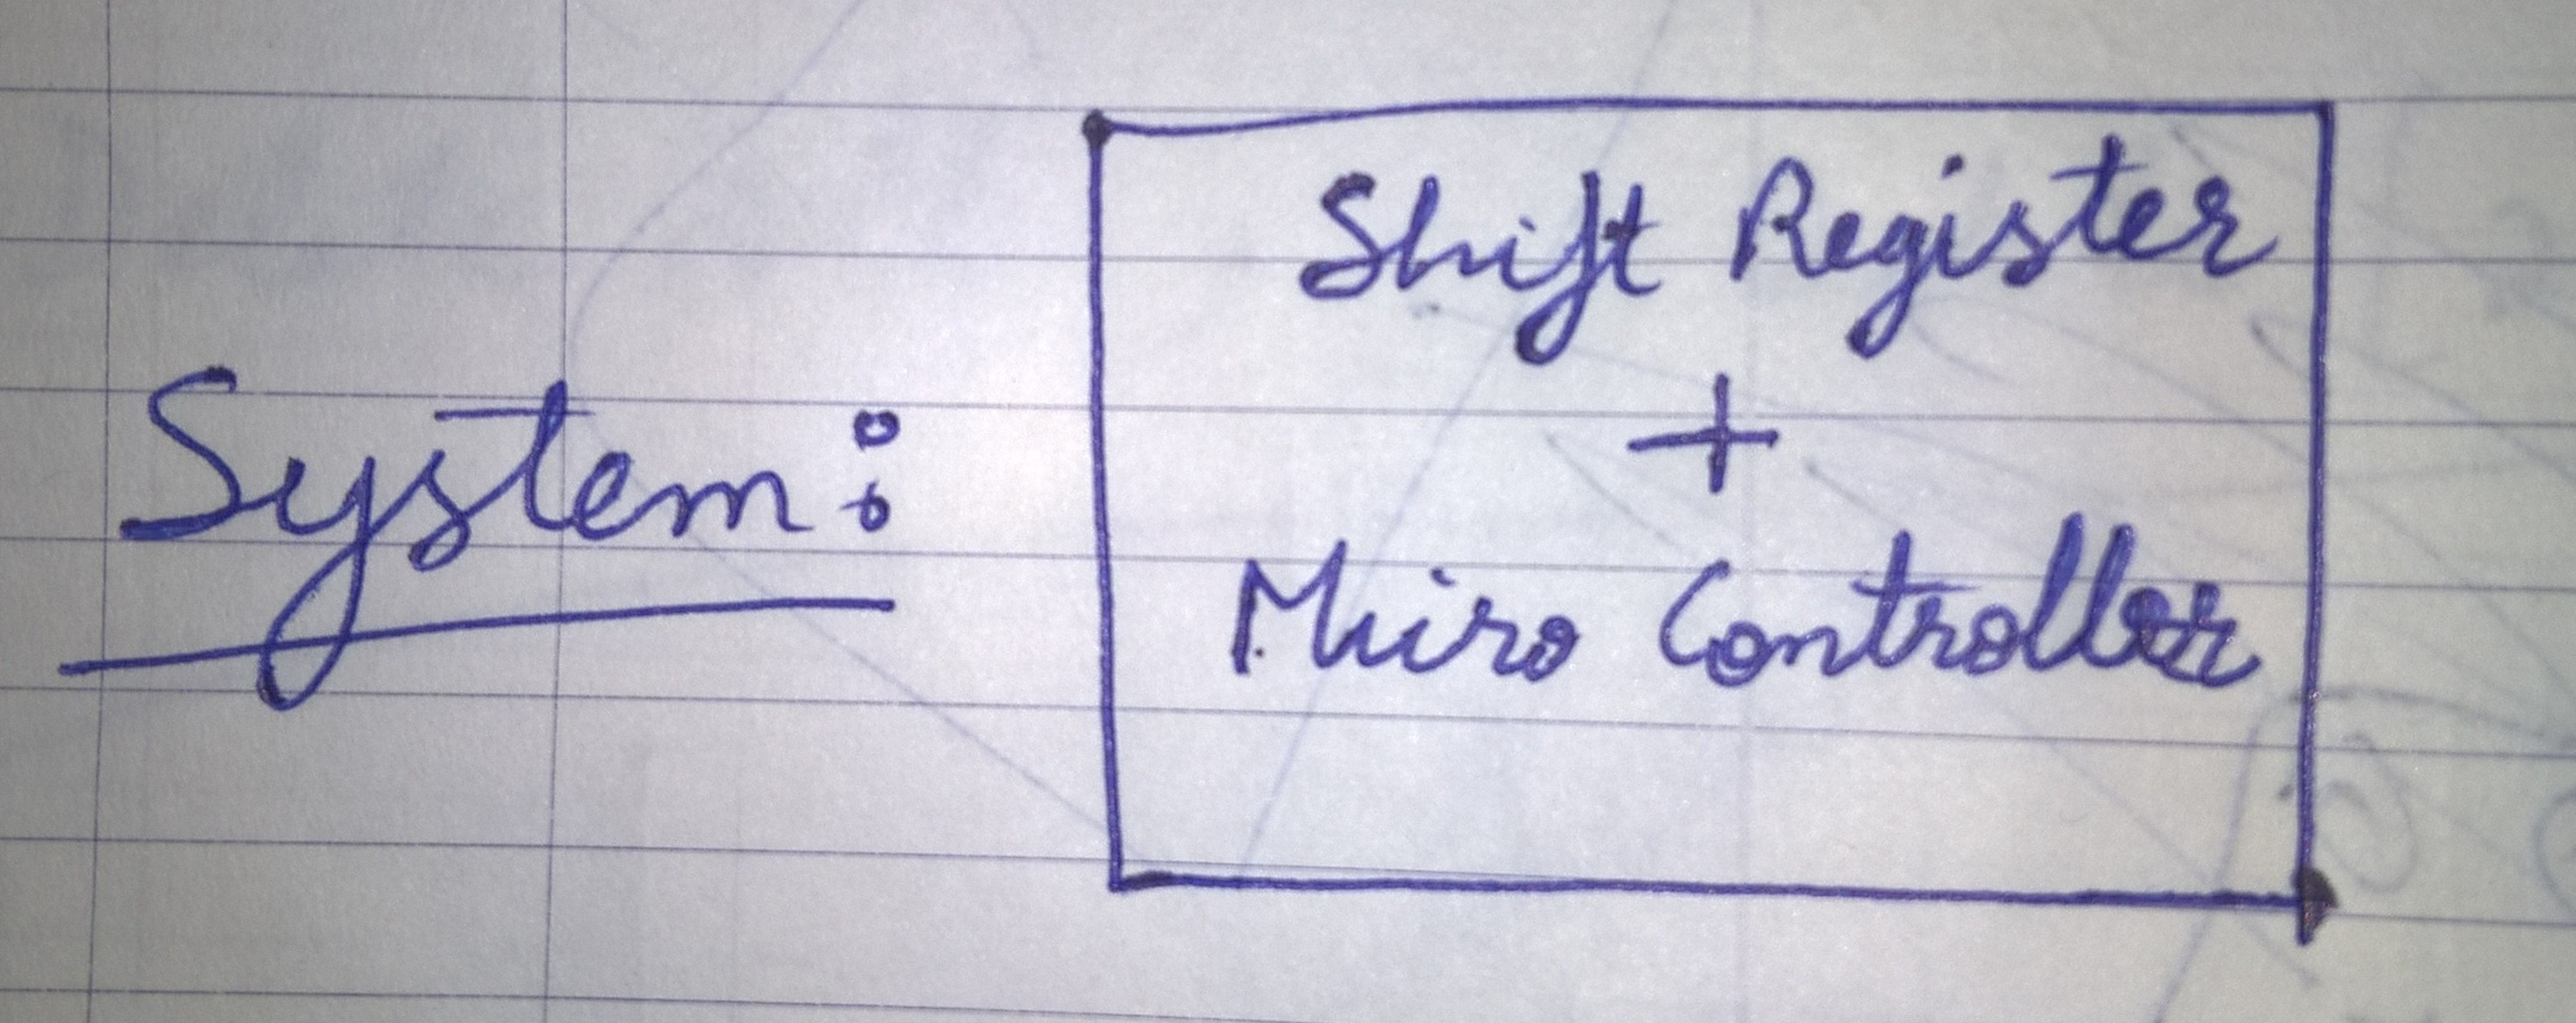 System:
Shift Register
+
Micro Controller